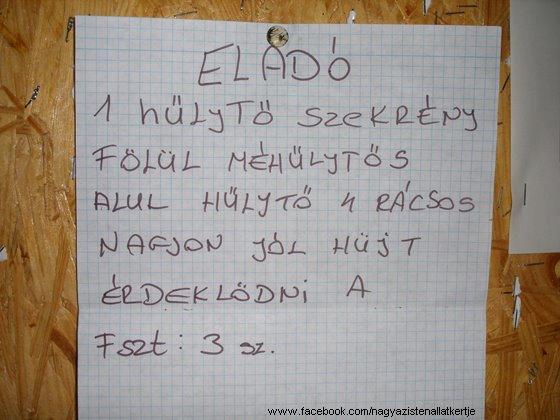 ELADÓ
1 HŰLYTŐ SZEKRÉNY
FÖLÜL MÉHŰLYTŐS
ALUL HŰLYTŐ 4 RÁCSOS
NAGJON JÓL HŰJT
ÉRDEKLŐDNI A
FSZT: 3 SZ.
www.facebook.com/nagyazistenallatkertje